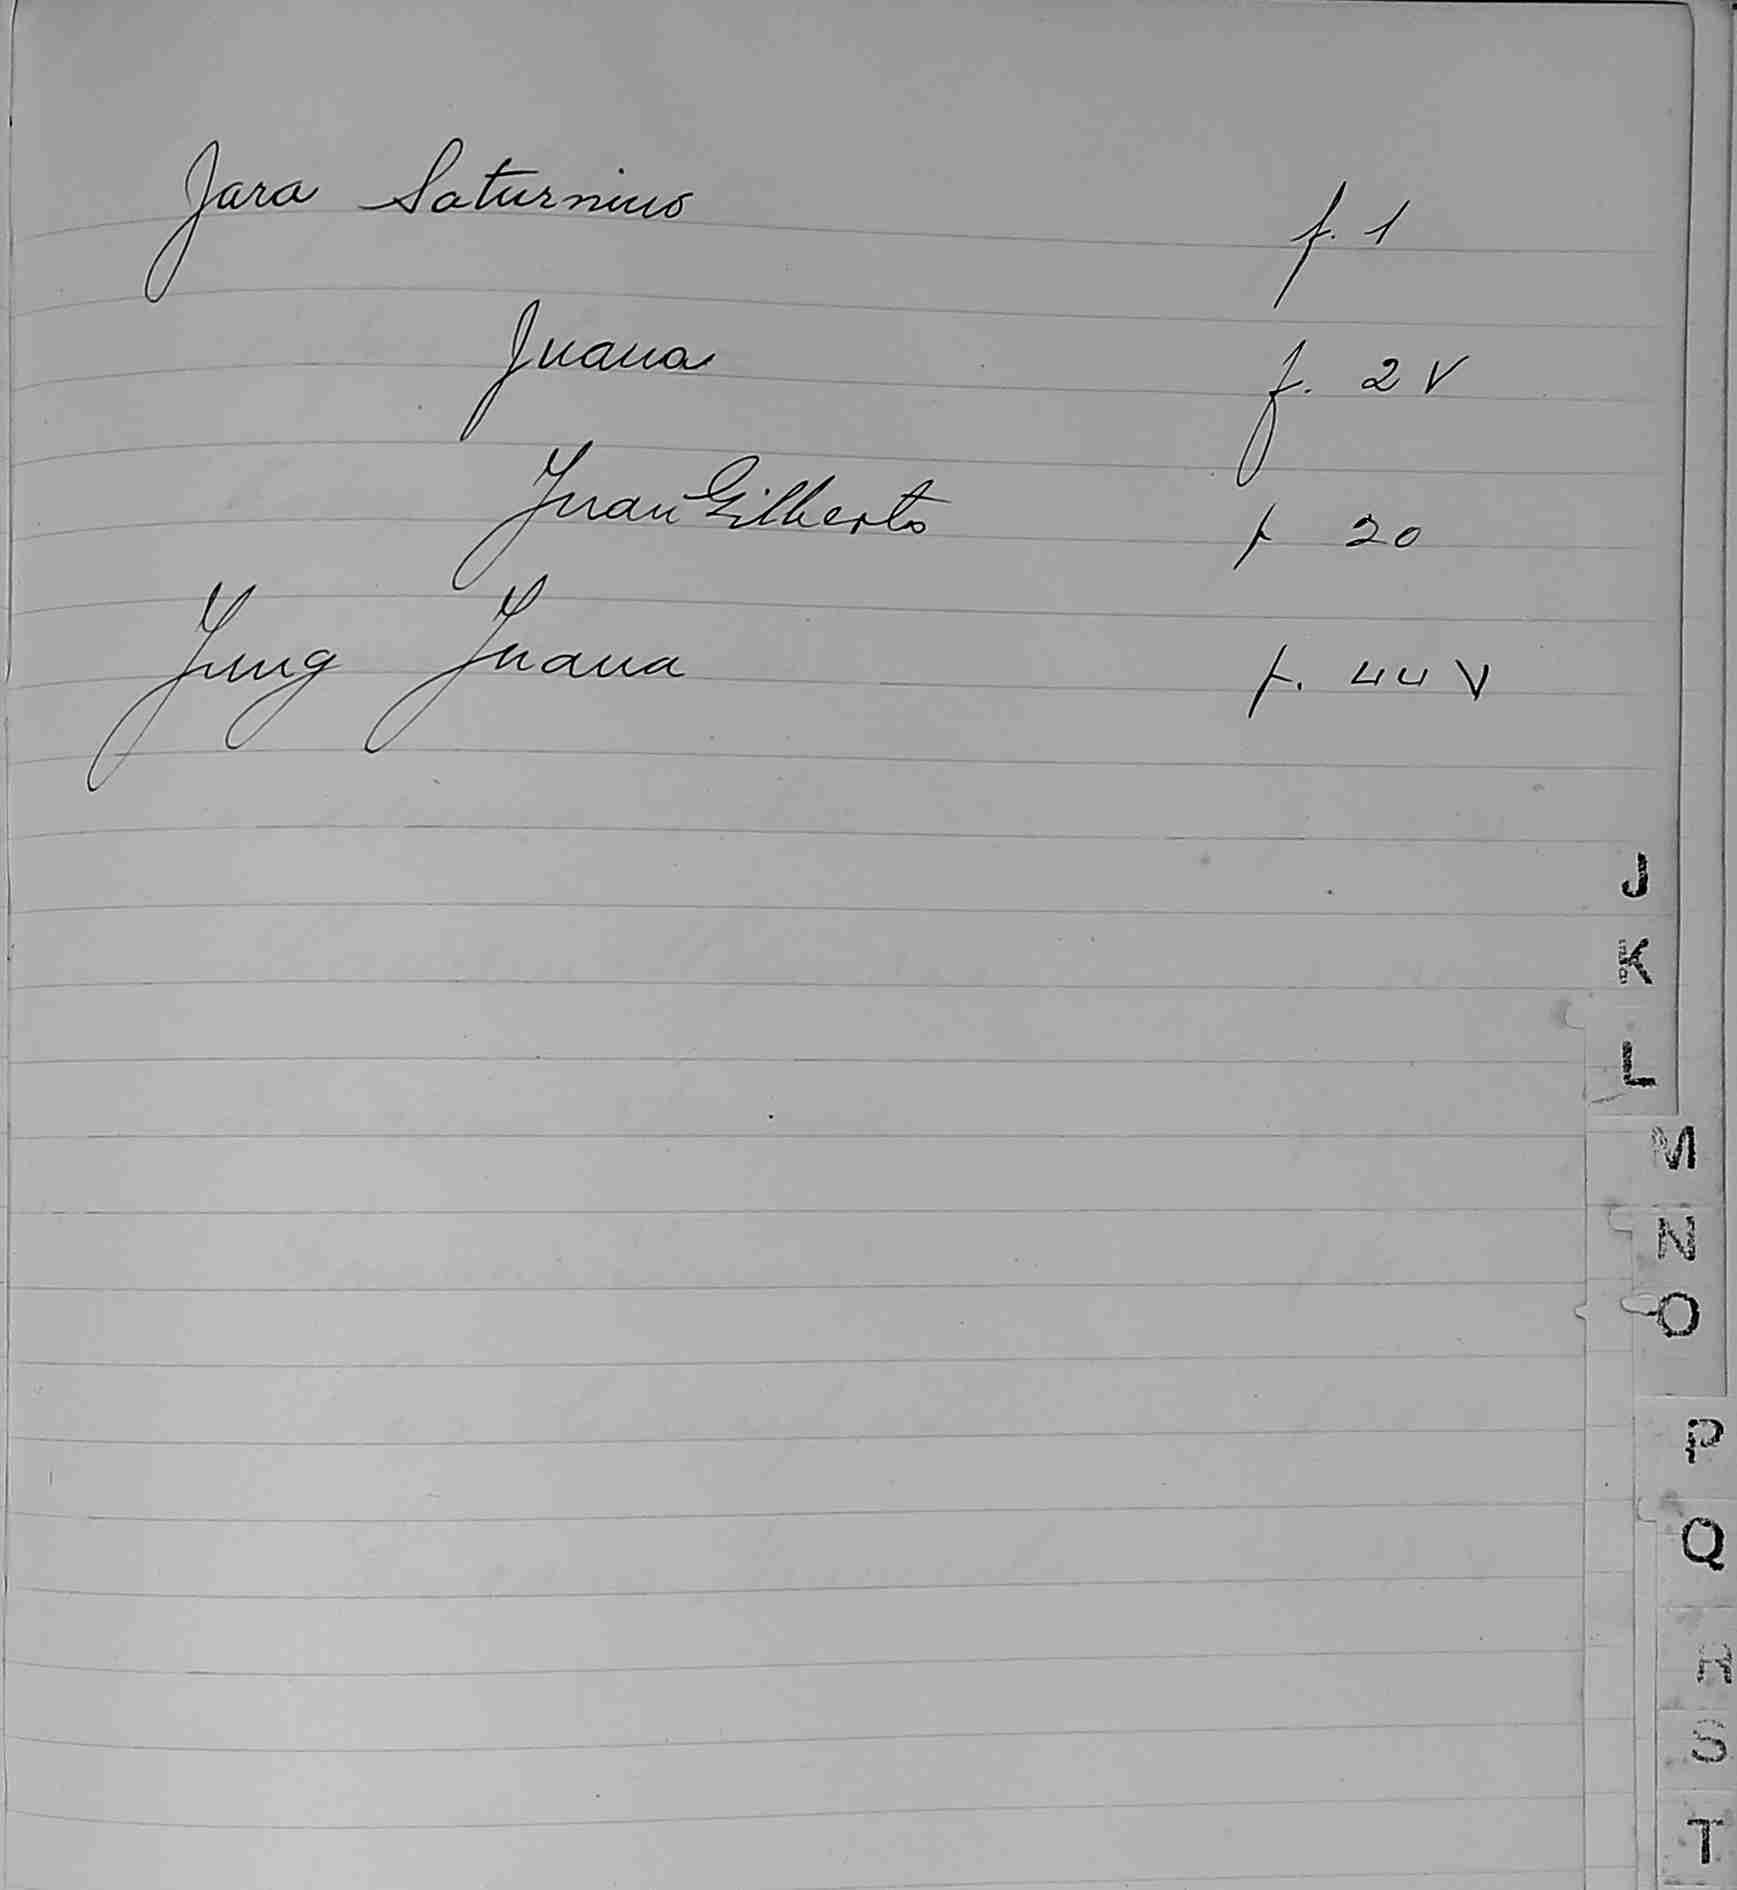 Jara Saturnino f. 1
Juana f. 2 V
Juan Gilberto f 20
Jung Juana f. 44 V
J
K
L
M
N
O
P
Q
R
S
T